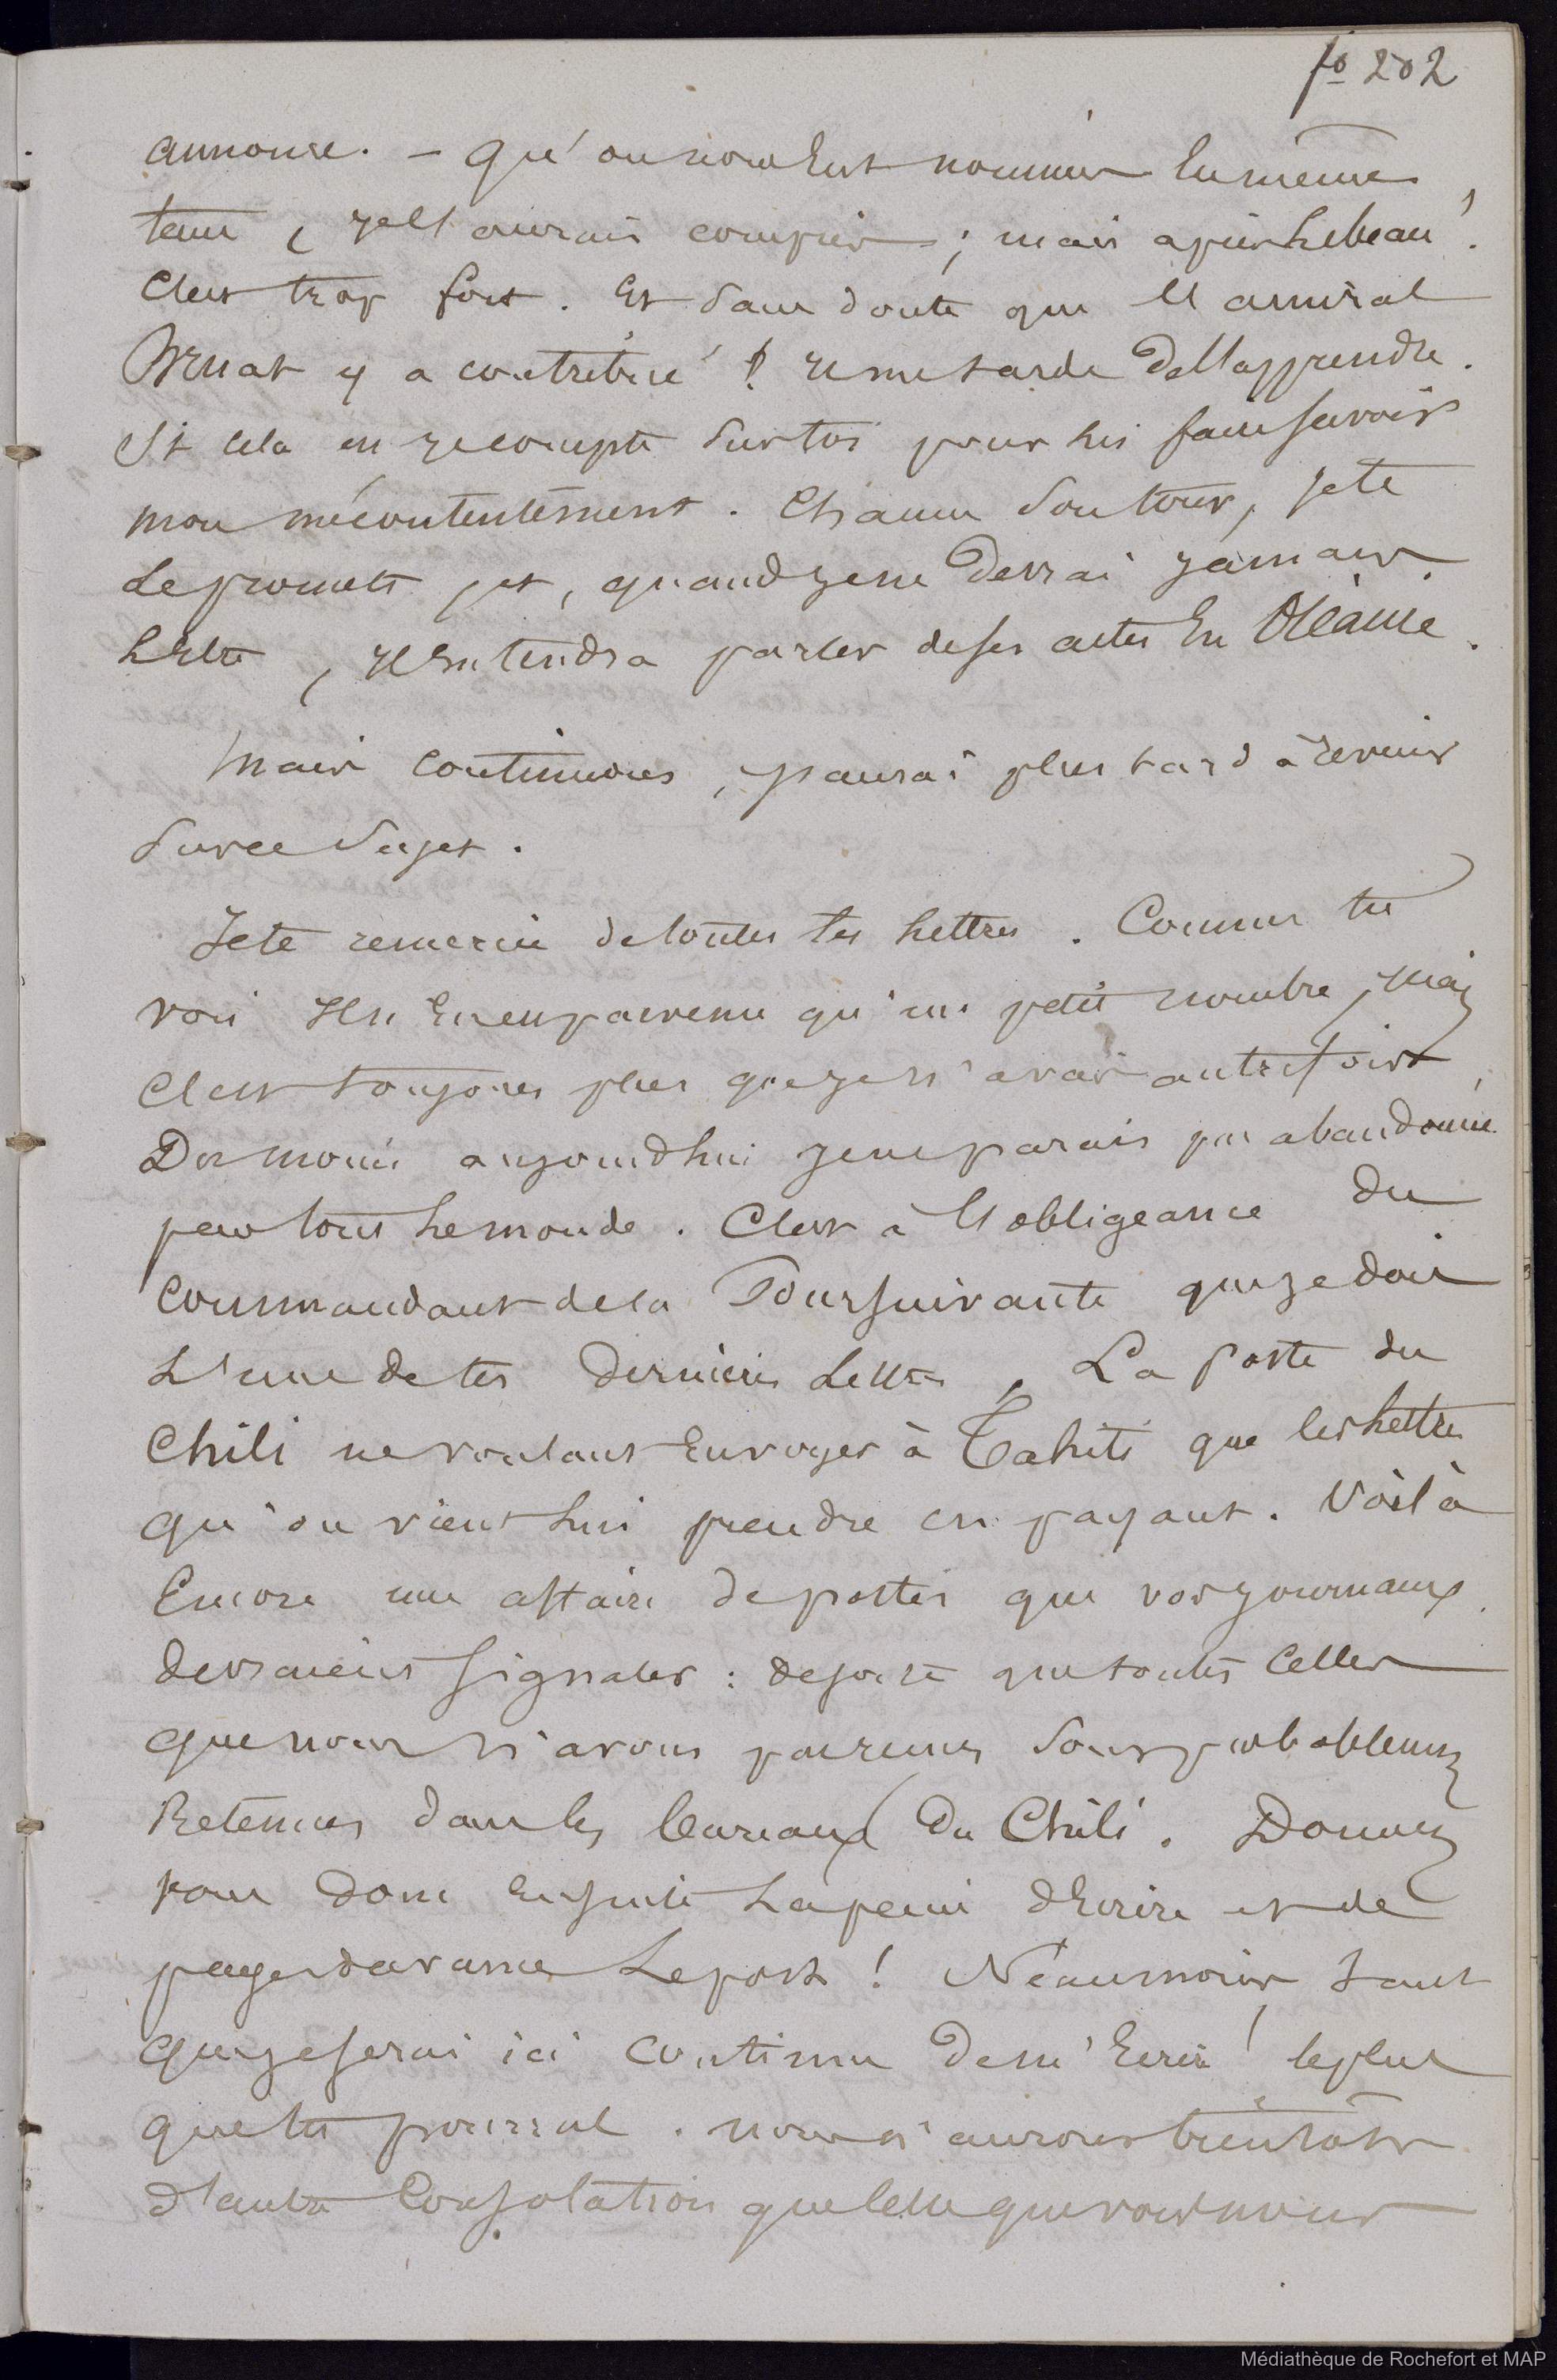 fo 202
annonce. – qu'on nous eut nommés en même
tems, je l'aurais compris ; mais après lebeau !
C'est trop fort. Et sans doute que l'amiral
Bruat y a contribué ! il me tarde de l'apprendre.
Si cela est je compte sur toi pour lui faire savoir
mon mécontentement. Chacun son tour, je te
le promets, et, quand je ne devrai jamais
l'être, il entendra parler de ses actes en Océanie.
Mais continuons, j'aurai plus tard à revenir
sur ce sujet.
Je te remercie de toutes tes lettres. Comme tu
vois il n'en est parvenu qu'un petit nombre, mais
c'est toujours plus que je n'avais autrefois,
Du moins aujourdhui je ne parais pas abandonné
par tout le monde. C'est à l'obligeance du
Commandant de la Poursuivante que je dois
l'une de tes dernières lettres, La poste du
Chili ne voulant envoyer à Tahiti que les lettres
qu'on vient lui prendre en payant. Voilà
Encore une affaire de postes que vos journaux
devraient signaler : de sorte que toutes celles
que nous n'avons pas reçues sont probablement
Retenues dans les bureaux du Chili. Donnez
vous donc ensuite la peine d'Ecrire et de
payer d'avance le port ! Néanmoins tant
que je serai ici continue de m'Ecrire le plus
que tu pourras. nous n'aurons bientôt
d'autre Consolation que celle que vous nous
Médiathèque de Rochefort et MAP